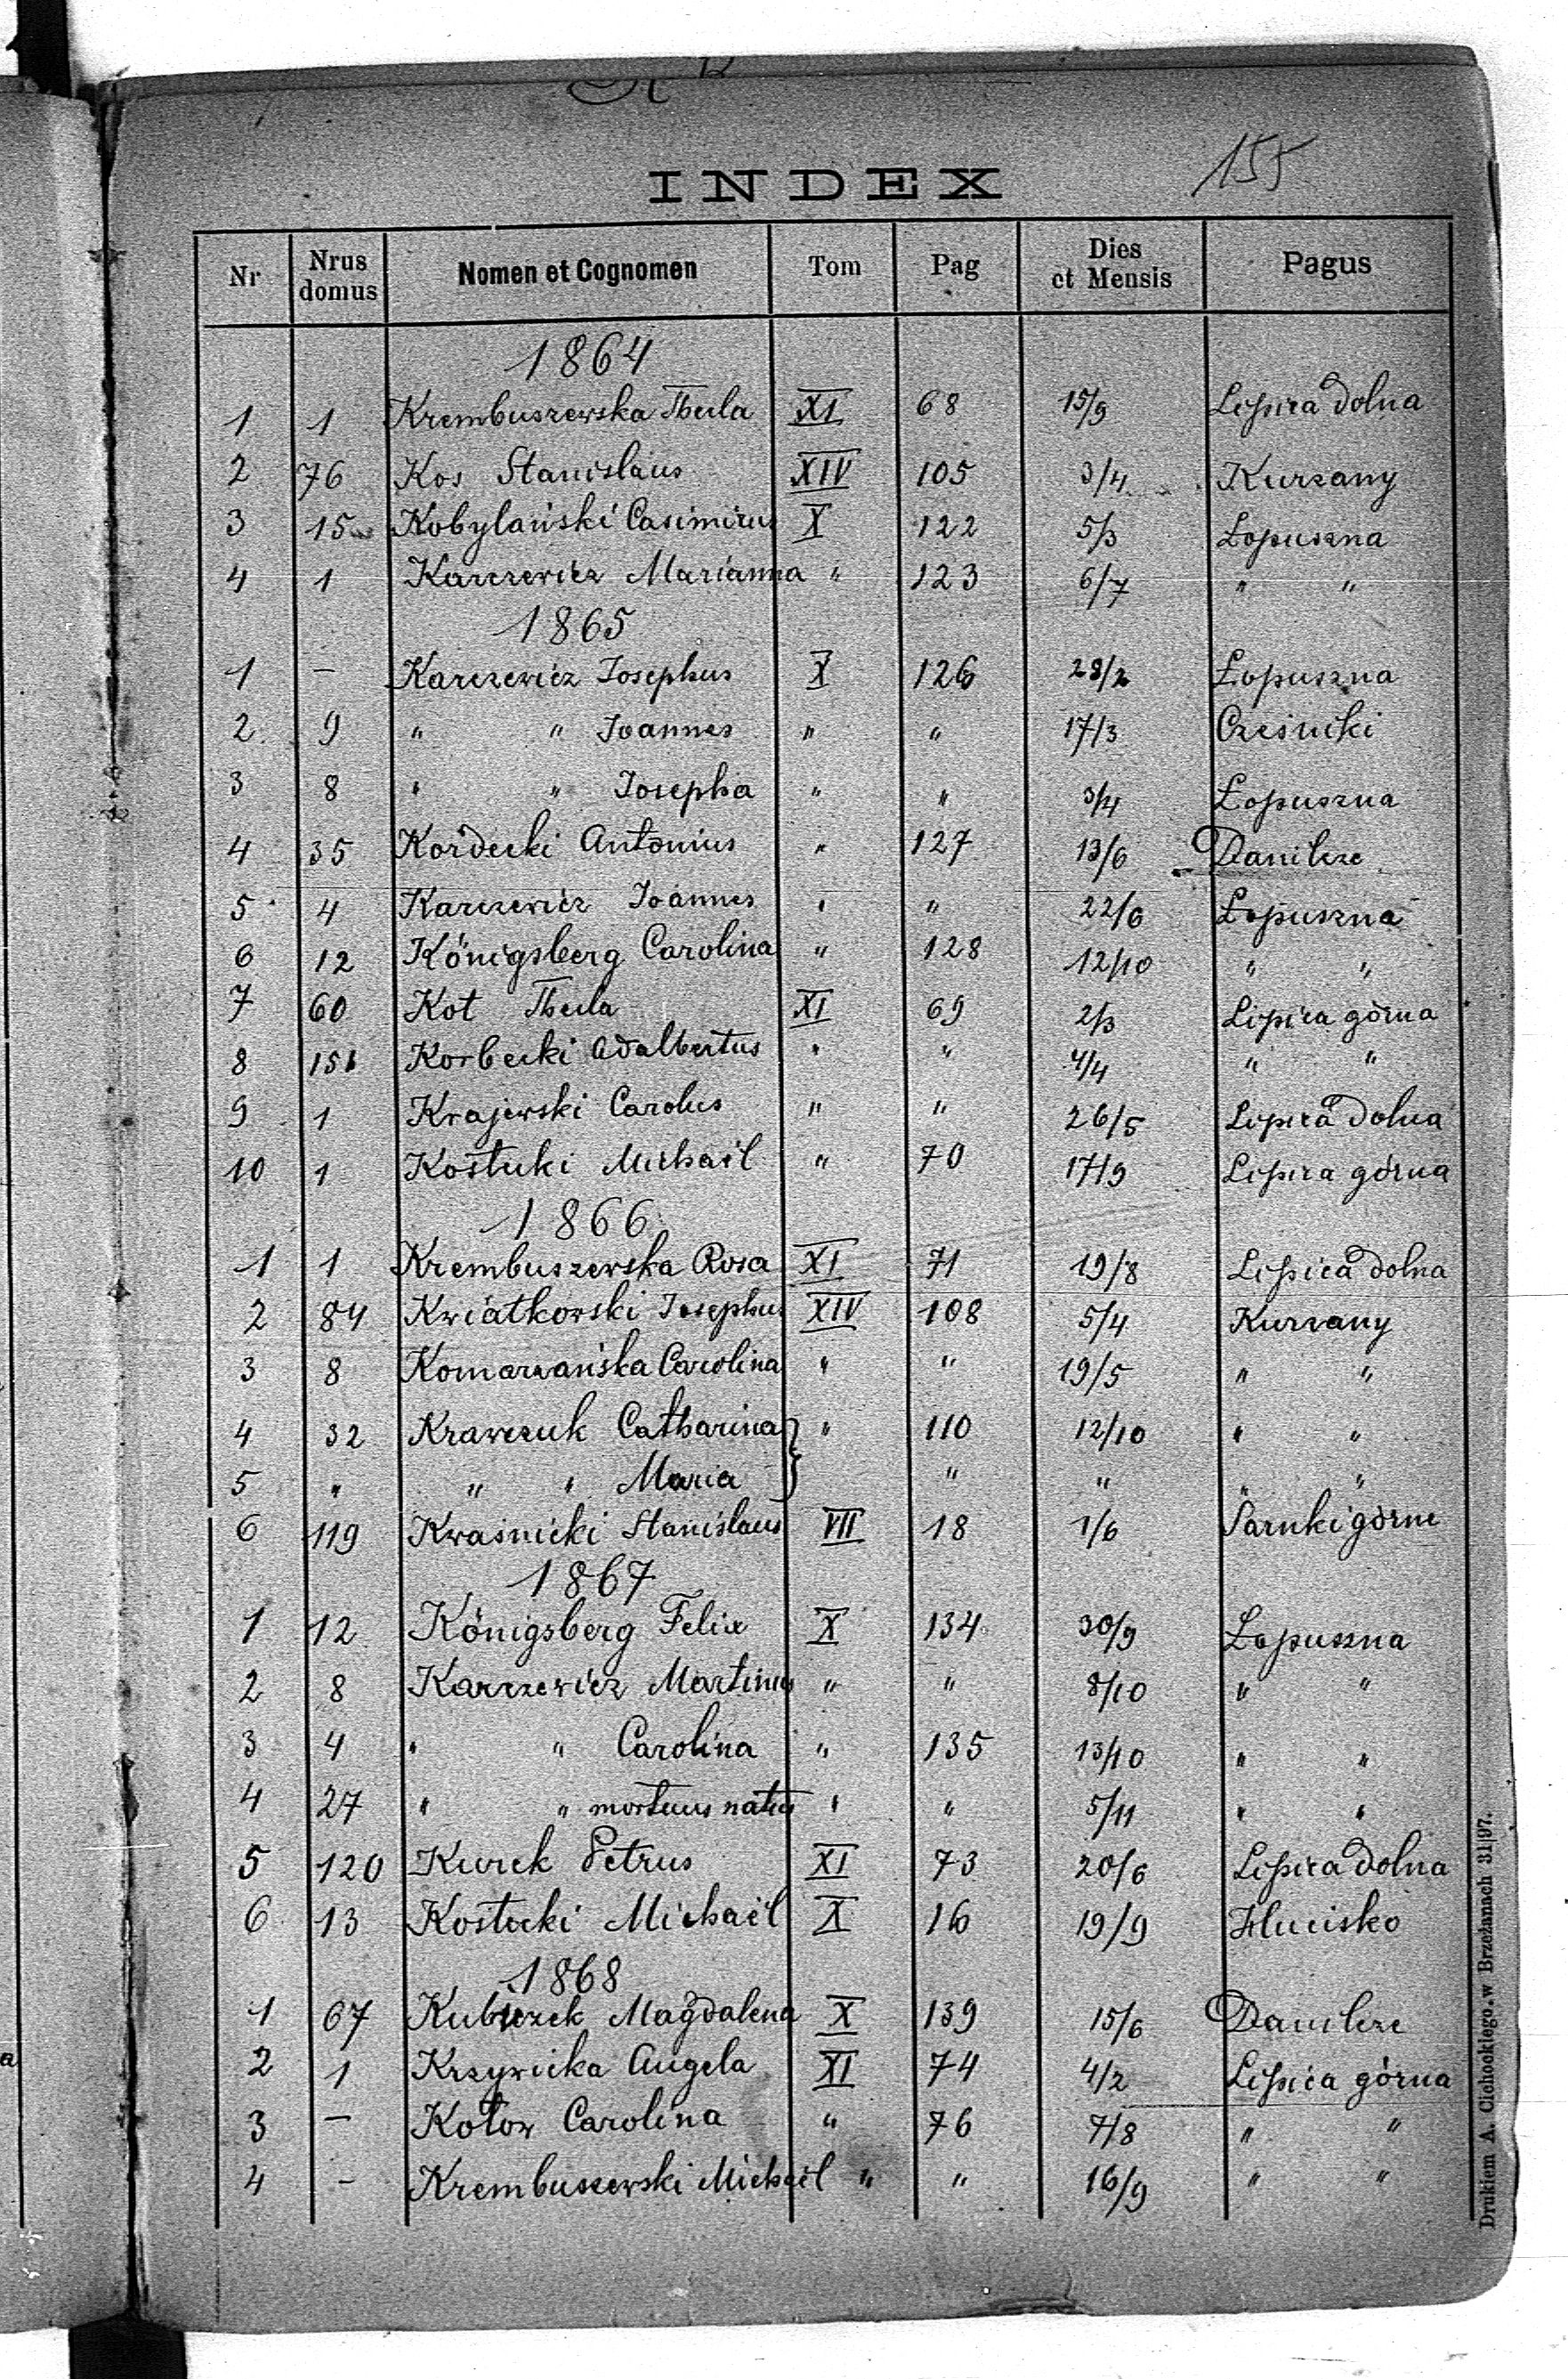 K
155
INDEX
Nr Nrus domus Nomen et Cognomen Tom Pag Dies et Mensis Pagus
1864
1 1 Krembuszewska Thecla XI 68 15/9 Lipica dolna
2 76 Kos Stanislaus XIV 105 3/4 Kurzany
3 15 Kobylański Casimirus X 122 5/3 Łopuszna
4 1 Karczewicz Marianna " 123 6/7 " "
1865
1 – Karczewicz Josephus X 126 28/2 Łopuszna
2 9 " " Joannes " " 17/3 Cześniki
3 8 " " Josepha " " 3/4 Łopuszna
4 35 Kordecki Antonius " 127 13/6 Danilcze
5 4 Karczewicz Joannes " " 22/6 Łopuszna
6 12 Königsberg Carolina " 128 12/10 " "
7 60 Kot Thecla XI 69 2/3 Lipica górna
8 151 Korbecki Adalbertus " " 4/4 " "
9 1 Krajewski Carolus " " 26/5 Lipica dolna
10 1 Kostecki Michaël " 70 17/9 Lipica górna
1866
1 1 Krembuszewska Rosa XI 71 19/8 Lipica dolna
2 84 Kwiatkowski Josephus XIV 108 5/4 Kurzany
3 8 Komarzańska Carolina " " 19/5 " "
4 32 Krawczuk Catharina } " 110 12/10 " "
5 " " " Maria } " " " "
6 119 Kwaśnicki Stanislaus VII 18 1/6 Sarnki górne
1867
1 12 Königsberg Felix X 134 30/9 Łopuszna
2 8 Karczewicz Martinus " " 8/10 " "
3 4 " " Carolina " 135 13/10 " "
4 27 " " mortuus natus " " 5/11 " "
5 120 Kurek Petrus XI 73 20/6 Lipica dolna
6 13 Kostecki Michaël X 16 19/9 Hucisko
1868
1 67 Kubiczek Magdalena X 139 15/6 Danilcze
2 1 Krzywicka Angela XI 74 4/2 Lipica górna
3 – Kotow Carolina " 76 7/8 " "
4 – Krembuszewski Michaël " " 16/9 " "
Drukiem A. Cichockiego w Brzeżanach 31|97.
a